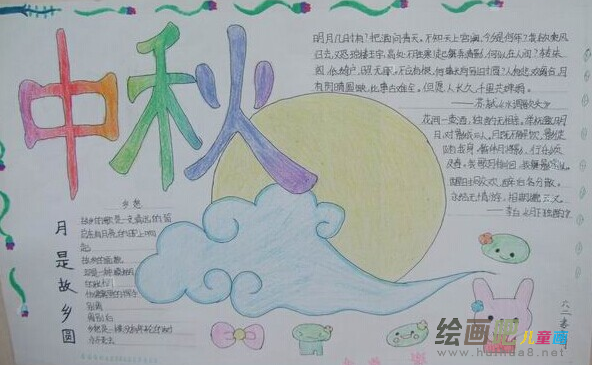 中秋
明月几时有?把酒问青天。不知天上宫阙,今夕是何年?我欲乘风
归去,又恐琼楼玉宇,高处不胜寒。起舞弄清影,何似在人间?转朱
阁,低绮户,照无眠。不应有恨,何事长向别时圆?人有悲欢离合,月
有阴晴圆缺,此事古难全。但愿人长久,千里共婵娟。
——苏轼《水调歌头》
花间一壶酒,独酌无相亲。举杯邀明
月,对影成三人。月既不解饮,影徒
随我身。暂伴月将影,行乐须
及春。我歌月徘徊,我舞影零乱。
醒时同交欢,醉后各分散。
永结无情游,相期邈云汉。
——李白《月下独酌》
乡愁
故乡的歌是一支清远的笛
总在有月亮的晚上响
起
故乡的面貌
别离后
月是故乡圆
绘画吧 儿童画
www.huihua8.net